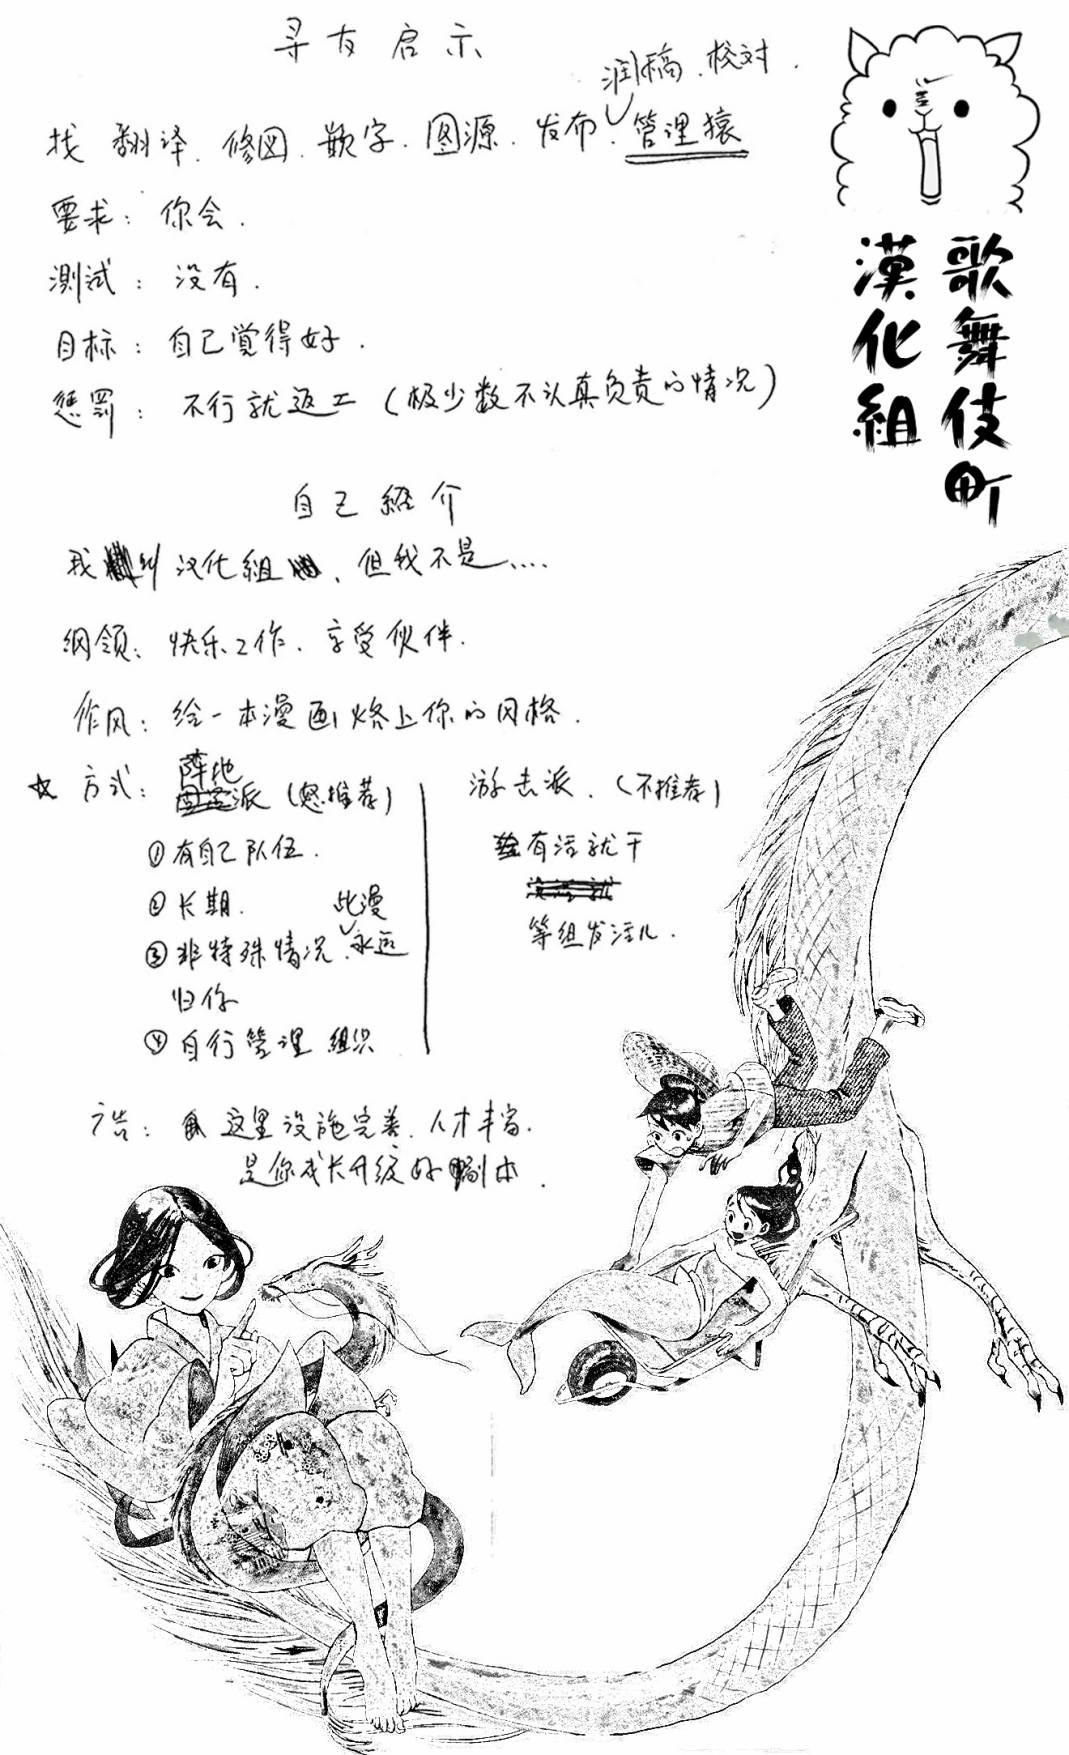 寻友启示
润稿、校对.
找翻译.修图.嵌字.图源.发布.管理猿
要求：你会.
测试：没有.
目标：自己觉得好.
惩罚：不行就返工（极少数不认真负责的情况）
自己紹介
我叫汉化组、但我不是....
纲领：快乐工作.享受伙伴.
作风：给一本漫画烙上你的风格.
☆方式：阵地派（怒推荐）
①有自己队伍.
②长期.
③非特殊情况.此漫永远
归你
④自行管理组织
游击派.（不推荐）
有活就干
等组发活儿.
广告：这里设施完善.人才丰富.
是你成长升级好副本.
歌舞伎町
漢化組